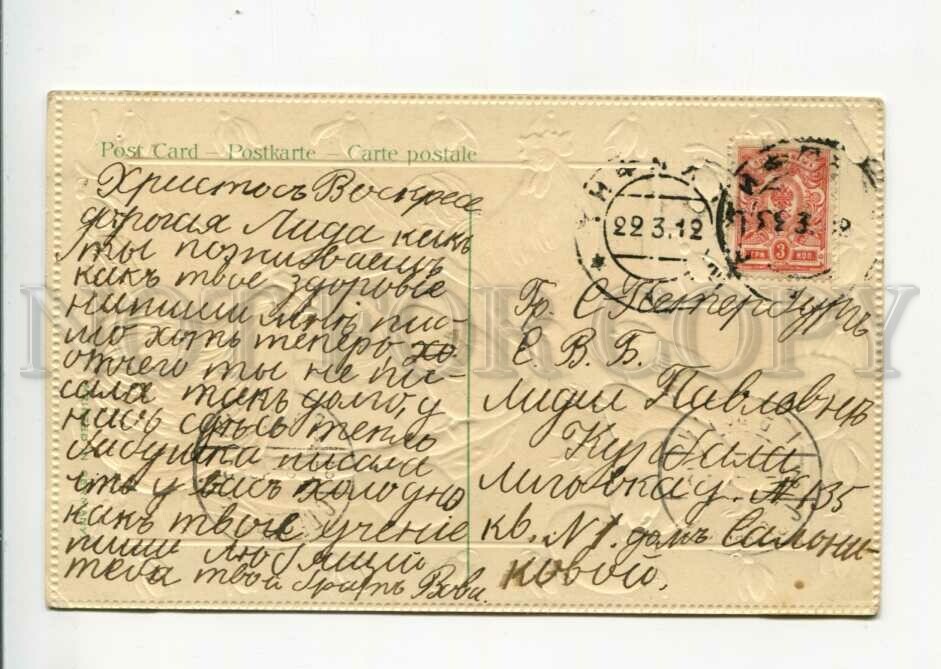 Post Card – Postkarte – Carte postale
Христосъ Воскресе
дорогая Лида какъ
ты поживаешь
какъ твое здоровіе
напиши мнѣ пис-
мо хоть теперь хо
отчего ты не пи-
сала такъ долго, у
насъ здѣсь тепло
бабушка писала
что у васъ холодно
какъ твое ученіе
пиши любящій
тебя твой братъ Вова.
22.3.12
3
КОП.
Гр. С Петербургъ
С. В. Б.
Лидіи Павловнѣ
Лиговка д. № 135
кв. N 1. домъ Салони-
ковой.
NOT FOR COPY